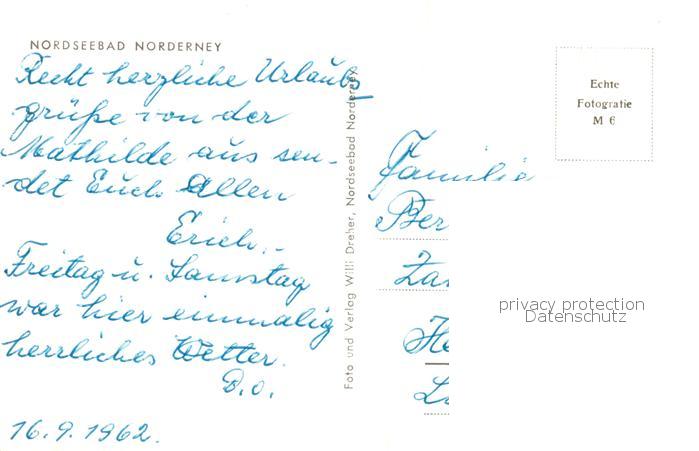 NORDSEEBAD NORDERNEY
Recht herzliche Urlaubs
grüße von der
Mathilde aus sen-
det Euch allen
Erich.-
Freitag u. Samstag
war hier einmalig
herrliches Wetter.
D.O.
16.9.1962.
Foto und Verlag Willi Dreher, Nordseebad Norderney
Echte
Fotografie
M 6
Familie
Ber
privacy protection
Datenschutz